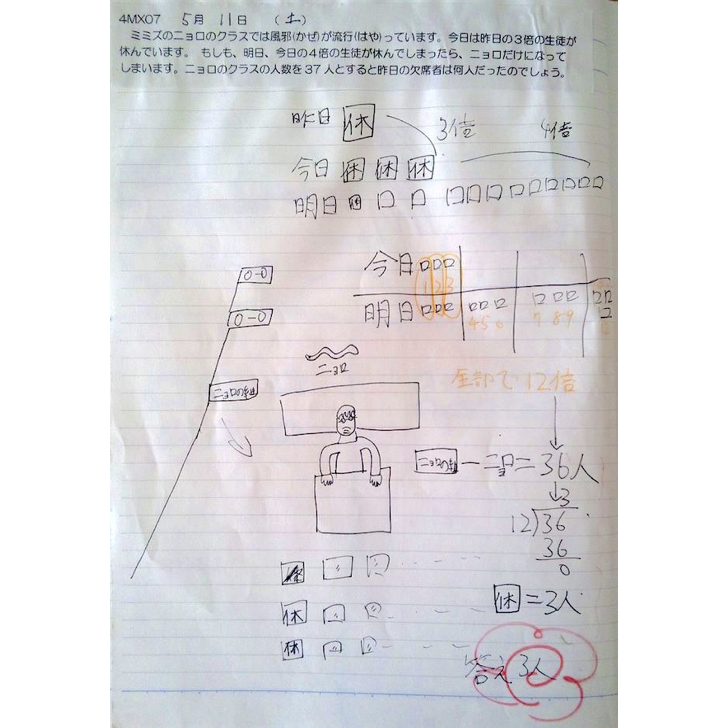 4MX07 5月 11日 (土)
ミミズのニョロのクラスでは風邪(かぜ)が流行(はや)っています。今日は昨日の3倍の生徒が
休んでいます。 もしも、明日、今日の4倍の生徒が休んでしまったら、ニョロだけになって
しまいます。ニョロのクラスの人数を37人とすると昨日の欠席者は何人だったのでしょう。
昨日 休 3倍 4倍
今日 休 休 休
明日 休
今日
1 2 3
明日
4 5 6 7 8 9
0-0
0-0
ニョロの組
ニョロ
全部で12倍
ニョロの組 - ニョロ = 36人
3
12)36
36
0
休
休 = 3人
休
休
答え 3人